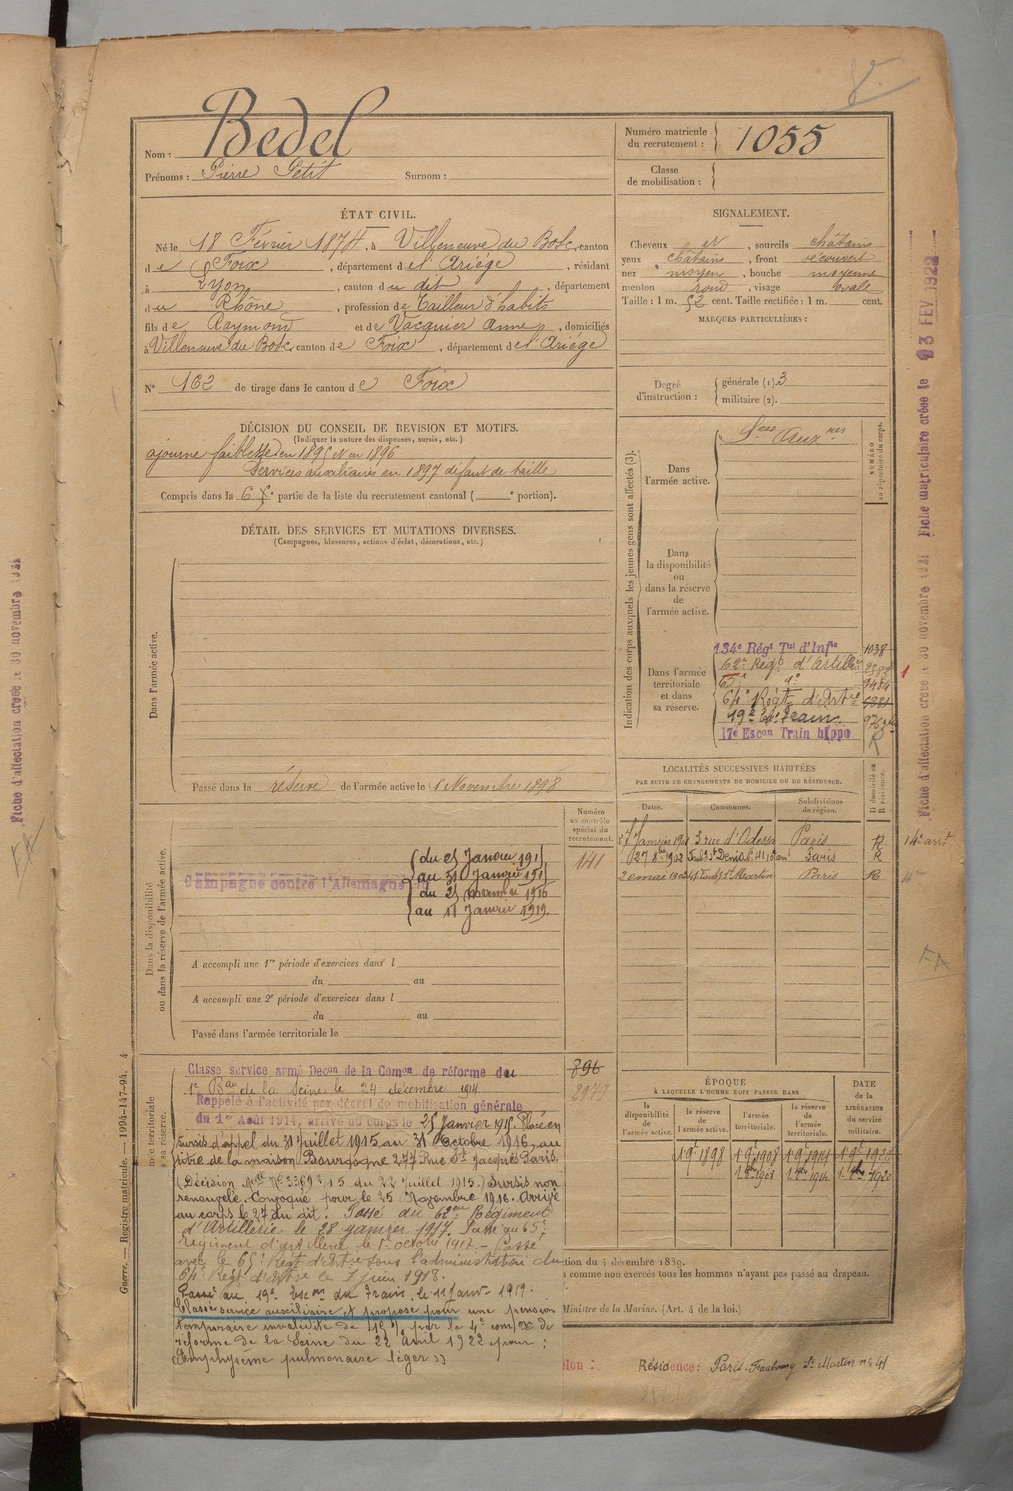 Nom : Bedel
Prénoms : Pierre Petit Surnom :
Numéro matricule du recrutement : 1055
Classe de mobilisation :
ÉTAT CIVIL.
Né le 18 Février 1874, à Villeneuve du Bosc, canton
de Foix, département de l'Ariége, résidant
à Lyon, canton du dit, département
du Rhône, profession de Tailleur d'habits
fils de Raymond et de Vacquier Anne, domiciliés
à Villeneuve du Bosc, canton de Foix, département de l'Ariége
N° 162 de tirage dans le canton de Foix
SIGNALEMENT.
Cheveux et, sourcils châtains
yeux châtains, front découvert
nez moyen, bouche moyenne
menton rond, visage ovale
Taille : 1 m. 52 cent. Taille rectifiée : 1 m. cent.
MARQUES PARTICULIÈRES :
Degré d'instruction : générale (1). 3
militaire (2).
DÉCISION DU CONSEIL DE REVISION ET MOTIFS.
(Indiquer la nature des dispenses, sursis, etc.)
ajourné faiblesse en 1895 et en 1896
Services auxiliaires en 1897 défaut de taille
Compris dans la 6e partie de la liste du recrutement cantonal ( e portion).
DÉTAIL DES SERVICES ET MUTATIONS DIVERSES.
(Campagnes, blessures, actions d'éclat, décorations, etc.)
Dans l'armée active.
Passé dans la réserve de l'armée active le 1 Novembre 1898
Indication des corps auxquels les jeunes gens sont affectés (3).
NUMÉRO au répertoire du corps.
Dans l'armée active.
Sces Auxres
Dans la disponibilité ou dans la réserve de l'armée active.
Dans l'armée territoriale et dans sa réserve.
134e Régt Tal d'Infie 1038
62e Régt d'Artillie
64e Régt d'Artie
19e Esc Train
17e Escon Train hippo R
LOCALITÉS SUCCESSIVES HABITÉES
PAR SUITE DE CHANGEMENTS DE DOMICILE OU DE RÉSIDENCE.
Dates. Communes. Subdivisions de région. D domicile ou R résidence.
3 rue d'Odessa Paris R 14e arrt
Paris R
2 mai Faubg St Martin Paris R
Dans la disponibilité ou dans la réserve de l'armée active.
Numéro au contrôle spécial du recrutement.
141
Campagne contre l'Allemagne du
du 25 Janvier 1915
au 31 Janvier 1915
du 25 novembre 1916
au 11 Janvier 1919.
A accompli une 1re période d'exercices dans l
du au
A accompli une 2e période d'exercices dans l
du au
Passé dans l'armée territoriale le
896
2979
Classé service armé Decon de la Comon de réforme du
1er Bau de la Seine le 24 décembre 1914
Rappelé à l'activité par décret de mobilisation générale
du 1er Août 1914, arrivé au corps le 25 Janvier 1915. Placé en
sursis d'appel du 31 Juillet 1915 au 31 Octobre 1916, au
titre de la maison Bourgogne 277 Rue St Jacques Paris.
(Décision Melle No 3369 2/5 du 22 Juillet 1915.) Sursis non
renouvelé. Convoqué pour le 25 Novembre 1916. Arrivé
au corps le 27 du dit. Passé au 62me Régiment
d'Artillerie le 28 janvier 1917. Passé au 65e
Régiment d'artillerie le 1 octobre 1917. - Passé
avec le 65e Régt d'Artie sous l'administration du
64e Régt d'Artie le 1 juin 1918.
Passé au 19e esc on du Train, le 11 janv. 1919.
Classé service auxiliaire et proposé pour une pension
temporaire invalidité de par la 4e com/on de
réforme de la Seine du 22 Avril 1922 pour :
Emphysème pulmonaire léger »
ÉPOQUE
À LAQUELLE L'HOMME DOIT PASSER DANS
DATE DE LA LIBÉRATION DU SERVICE MILITAIRE.
la disponibilité de l'armée active. la réserve de l'armée active. l'armée territoriale. la réserve de l'armée territoriale.
1 9e 1898 1 9e 1908 1 9e 1914 1 9e 1920
1 8bre 1908 1 8bre 1914 1 8bre 1920
tion du 4 décembre 1889.
a comme non exercés tous les hommes n'ayant pas passé au drapeau.
Ministre de la Marine. (Art. 4 de la loi.)
Résidence : Paris. Faubourg St Martin no 41
Guerre. — Registre matricule. — 1994-147-94. 4
Fiche d'affectation créée le 30 novembre 1921
Fiche d'affectation créée le 30 novembre 1921 Fiche matriculaire créée le 03 FEV 1922
FA
FA